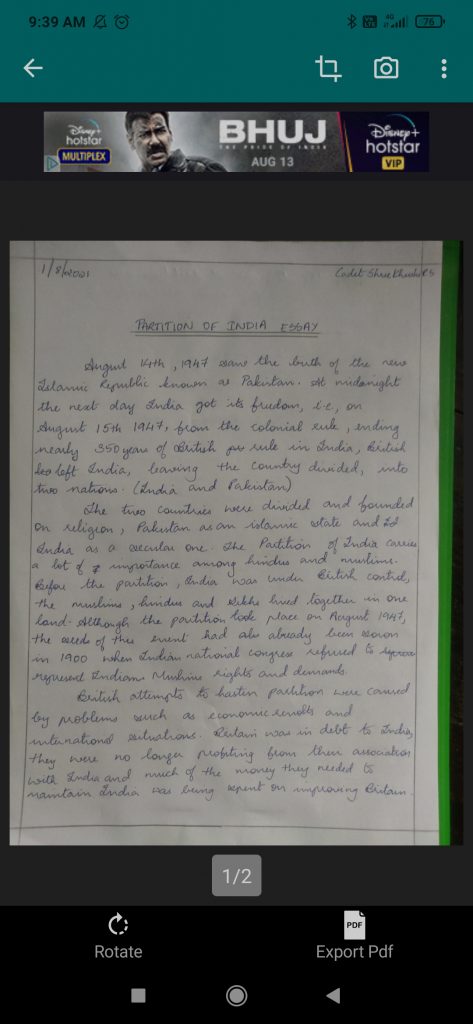 9:39 AM 4G 76
Disney+
hotstar
MULTIPLEX
BHUJ
THE PRIDE OF INDIA
AUG 13
Disney+
hotstar
VIP
1/8/2021 Cadet Shree Khushi R S
PARTITION OF INDIA ESSAY
August 14th, 1947 saw the birth of the new
Islamic Republic known as Pakistan. At midnight
the next day India got its freedom, i.e., on
August 15th 1947, from the colonial rule, ending
nearly 350 years of British rule in India, British
left India, leaving the country divided, into
two nations. (India and Pakistan)
The two countries were divided and founded
on religion, Pakistan as an islamic state and
India as a secular one. The Partition of India carries
a lot of importance among hindus and muslims.
Before the partition, India was under British control,
the muslims, hindus and Sikhs lived together in one
land. Although the partition took place on August 1947,
the seeds of this event had already been sown
in 1900 when Indian national congress refused to
represent Indians Muslims rights and demands.
British attempts to hasten partition were caused
by problems such as economic results and
international situations. Britain was in debt to India,
they were no longer profiting from their association
with India and much of the money they needed to
maintain India was being spent on improving Britain.
1/2
Rotate
PDF
Export Pdf